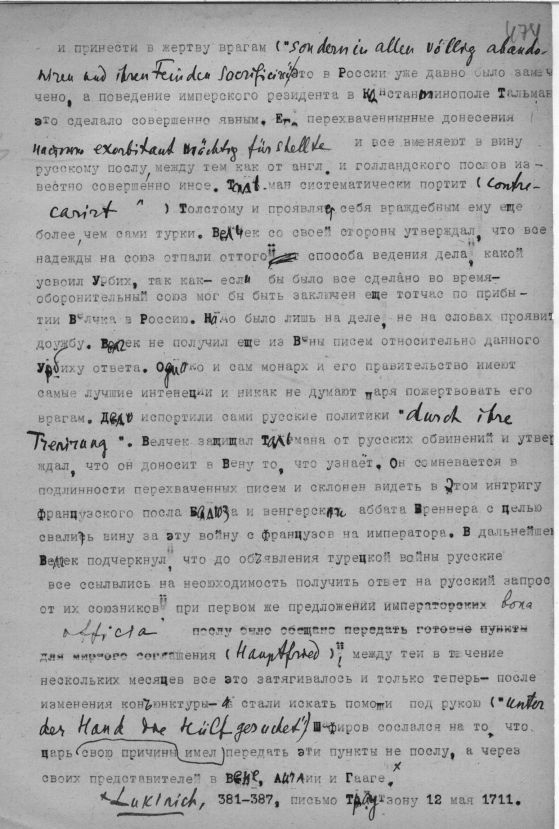 474
и принести в жертву врагам ("sondern in allen völlig abando-
niren und ihren Feinden sacrificiri") это в России уже давно было заме-
чено, а поведение имперского резидента в Константинополе Тальман
это сделало совершенно явным. Его перехваченнынные донесения
настояно exorbitant mächtig fürstellte и все вменяют в вину
русскому послу, между тем как от англ. и голландского послов из-
вестно совершенно иное. Тальман систематически портит (contre-
carirt ) Толстому и проявляет себя враждебным ему еще
более, чем сами турки. Велчек со своей стороны утверждал, что все
надежды на союз отпали оттого" способа ведения дела", какой
усвоил Урбих, так как- если бы было все сделано во время-
оборонительный союз мог бы быть заключен еще тотчас по прибы-
тии Велчка в Россию. Надо было лишь на деле, не на словах проявит
дружбу. Велчек не получил еще из Вены писем относительно данного
Урбиху ответа. Однако и сам монарх и его правительство имеют
самые лучшие интенции и никак не думают царя пожертвовать его
врагам. Дело испортили сами русские политики "durch ihre
Trenirung". Велчек защищал Тальмана от русских обвинений и утвер
ждал, что он доносит в Вену то, что узнает. Он сомневается в
подлинности перехваченных писем и склонен видеть в этом интригу
французского посла Балюза и венгерского аббата Бреннера с целью
свалить вину за эту войну с французов на императора. В дальнейшем
Велчек подчеркнул, что до объявления турецкой войны русские
все ссылвлись на неоюходимость получить ответ на русский запрос
от их союзников" при первом же предложении императорских bona
officia послу было обещано передать готовые пункты
для мирного соглашения (Hauptfried)", между тем в течение
нескольких месяцев все это затягивалось и только теперь- после
изменения конъюнктуры- стали искать помощи под рукою ("unter
der Hand die Hülf gesuchet") Шафиров сослался на то, что
царь свою причины имел передать эти пункты не послу, а через
своих представителей в Вене, Англии и Гааге.x
x Lukinich, 381-387, письмо Траутзону 12 мая 1711.